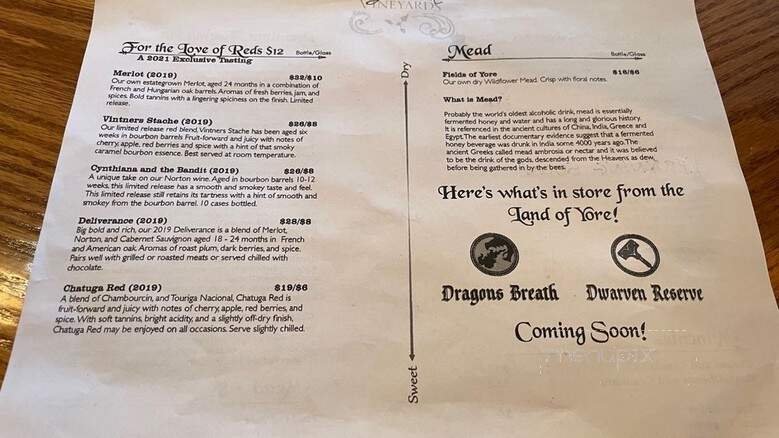 VINEYARDS
For the Love of Reds $12 Bottle/Glass
A 2021 Exclusive Tasting
Merlot (2019) $32/$10
Our own estategrown Merlot, aged 24 months in a combination of
French and Hungarian oak barrels. Aromas of fresh berries, jam, and
spices. Bold tannins with a lingering spiciness on the finish. Limited
release.
Vintners Stache (2019) $26/$8
Our limited release red blend, Vintners Stache has been aged six
weeks in bourbon barrels Fruit-forward and juicy with notes of
cherry, apple, red berries and spice with a hint of that smoky
caramel bourbon essence. Best served at room temperature.
Cynthiana and the Bandit (2019) $26/$8
A unique take on our Norton wine. Aged in bourbon barrels 10-12
weeks, this limited release has a smooth and smokey taste and feel.
This limited release still retains its tartness with a hint of smooth and
smokey from the bourbon barrel. 10 cases bottled.
Deliverance (2019) $28/$8
Big bold and rich, our 2019 Deliverance is a blend of Merlot,
Norton, and Cabernet Sauvignon aged 18 - 24 months in French
and American oak. Aromas of roast plum, dark berries, and spice.
Pairs well with grilled or roasted meats or served chilled with
chocolate.
Chatuga Red (2019) $19/$6
A blend of Chambourcin, and Touriga Nacional, Chatuga Red is
fruit-forward and juicy with notes of cherry, apple, red berries, and
spice. With soft tannins, bright acidity, and a slightly off-dry finish,
Chatuga Red may be enjoyed on all occasions. Serve slightly chilled.
Dry
Sweet
Mead Bottle/Glass
Fields of Yore $16/$6
Our own dry Wildflower Mead. Crisp with floral notes.
What is Mead?
Probably the world's oldest alcoholic drink, mead is essentially
fermented honey and water and has a long and glorious history.
It is referenced in the ancient cultures of China, India, Greece and
Egypt. The earliest documentary evidence suggest that a fermented
honey beverage was drunk in India some 4000 years ago. The
ancient Greeks called mead ambrosia or nectar and it was believed
to be the drink of the gods, descended from the Heavens as dew,
before being gathered in by the bees.
Here's what's in store from the
Land of Yore!
Dragons Breath Dwarven Reserve
Coming Soon!
menupix